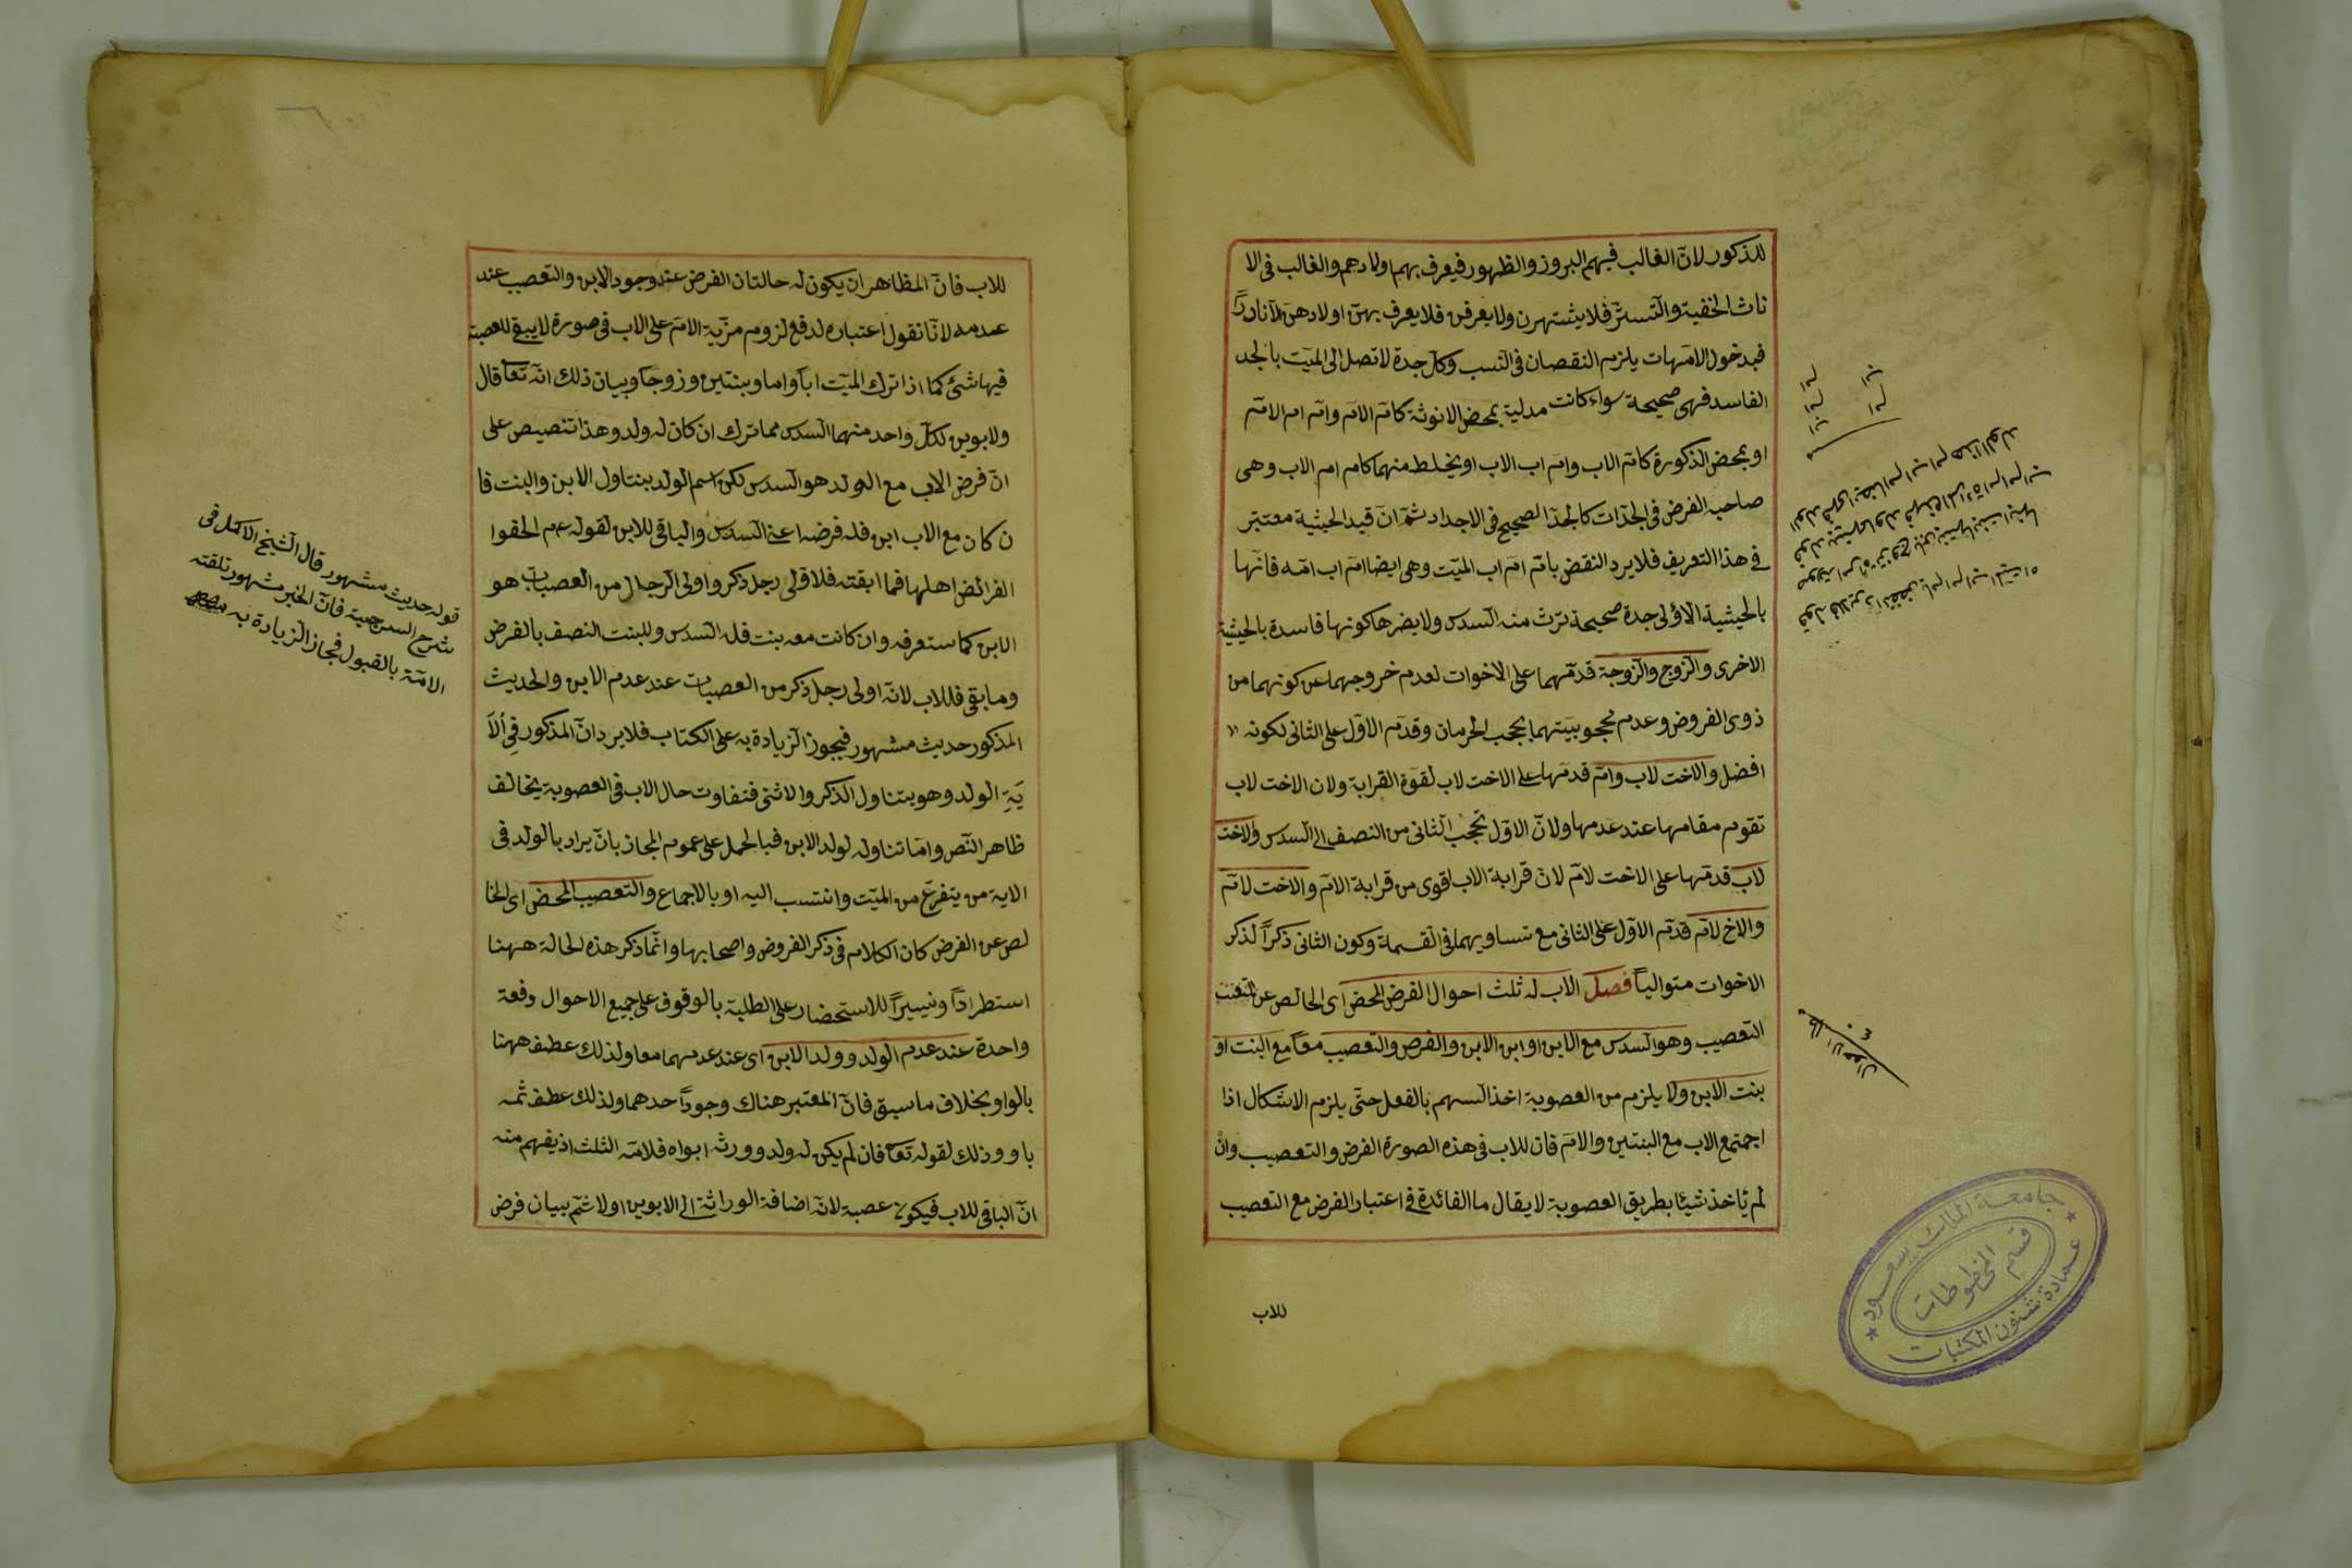 للذكور لانّ الغالب فيهم البروز والظهور فيعرف بهم اولادهم والغالب فى الا
ناث الخفية والتستّر فلا يشتهرن ولا يعرفن فلا يعرف بهنّ اولادهنّ الا نادرًا
فبدخول الامّهات يلزم النقصان فى النسب وكل جدة لا تصل الى الميّت بالجد
الفاسد فهى صحيحة سواء كانت مدلية بمحض الانوثة كامّ الامّ وامّ ام الامّ
او بمحض الذكورة كامّ الاب وامّ اب الاب او بخلط منهما كام ام الاب وهى
صاحبة الفرض فى الجدّات كالجدّ الصحيح فى الاجداد ثمّ انّ قيد الحيثية معتبر
فى هذا التعريف فلا يرد النقض بامّ امّ اب الميّت وهى ايضا امّ اب امّه فانّها
بالحيثية الاولى جدة صحيحة ترث منه السدس ولا يضرها كونها فاسدة بالحيثية
الاخرى والزوج والزوجة قدّمهما على الاخوات لعدم خروجهما عن كونهما من
ذوى الفروض وعدم محجوبيّتهما بحجب الحرمان وقدّم الاوّل على الثانى لكونه
افضل والاخت لاب وامّ قدّمها على الاخت لاب لقوّة القرابة ولان الاخت لاب
تقوم مقامها عند عدمها ولانّ الاوّل تحجب الثانى من النصف الى السدس والاخت
لاب قدّمها على الاخت لامّ لانّ قرابة الاب اقوى من قرابة الامّ والاخت لامّ
والاخ لامّ قدّم الاوّل على الثانى مع تساويهما فى القسمة وكون الثانى ذكرًا لذكر
الاخوات متواليًا فصل الاب له ثلث احوال الفرض المحض اى الخالص عن
التعصيب وهو السدس مع الابن او ابن الابن والفرض والتعصيب معًا مع البنت او
بنت الابن ولا يلزم من العصوبة اخذ السهم بالفعل حتّى يلزم الاشكال اذا
اجتمع الاب مع البنتين والامّ فان للاب فى هذه الصورة الفرض والتعصيب وان
لم يأخذ شيئا بطريق العصوبة لا يقال ما الفائدة فى اعتبار الفرض مع التعصيب
للاب
جامعة الملك سعود
قسم المخطوطات
عمادة شئون المكتبات
للاب فانّ الظاهر ان يكون له حالتان الفرض عند وجود الابن والتعصيب عند
عدمه لانّا نقول اعتباره لدفع لزوم مزّية الامّ على الاب فى صورة لا يبقى للعصبة
فيها شئ كما اذا ترك الميّت ابًا واما وبنتين وزوجًا وبيان ذلك انّه تعا قال
ولابوين لكلّ واحد منهما السدس مما ترك ان كان له ولد وهذا تنصيص على
انّ فرض الاب مع الولد هو السدس لكن اسم الولد يتناول الابن والبنت فا
ن كان مع الاب ابن فله فرضه اعنى السدس والباقى للابن لقوله عم الحقوا
الفرائض اهلها فما ابقته فلاولى رجل ذكر واولى الرجال من العصبات هو
الابن كما ستعرفه وان كانت معه بنت فله السدس وللبنت النصف بالفرض
وما بقى فللاب لانّه اولى رجل ذكر من العصبات عند عدم الابن والحديث
المذكور حديث مشهور فيجوز الزيادة به على الكتاب فلا يرد انّ المذكور فى الآ
ية الولد وهو يتناول الذكر والانثى فتفاوت حال الاب فى العصوبة يخالف
ظاهر النّص وامّا تناوله لولد الابن فبالحمل على عموم المجاز بان يراد بالولد فى
الاية من يتفرع من الميّت وانتسب اليه او بالاجماع والتعصيب المحض اى الخا
لص عن الفرض كان الكلام فى ذكر الفروض واصحابها وانّما ذكر هذه الحالة ههنا
استطرادًا وتيسيرًا للاستحضار على الطلبة بالوقوف على جميع الاحوال دفعة
واحدة عند عدم الولد وولد الابن اى عند عدمهما معا ولذلك عطف ههنا
بالواو بخلاف ما سبق فانّ المعتبر هناك وجود احدهما ولذلك عطف ثمّه
باو وذلك لقوله تعا فان لم يكن له ولد وورثه ابواه فلامّه الثلث اذ يفهم منه
انّ الباقى للاب فيكون عصبة لانّه اضافة الوراثة الى الابوين اولا ثمّ بيان فرض
قوله حديث مشهور قال الشيخ الاكمل فى
شرح السرجية فانّ الخبر مشهور تلقته
الامّة بالقبول فجاز الزيادة به